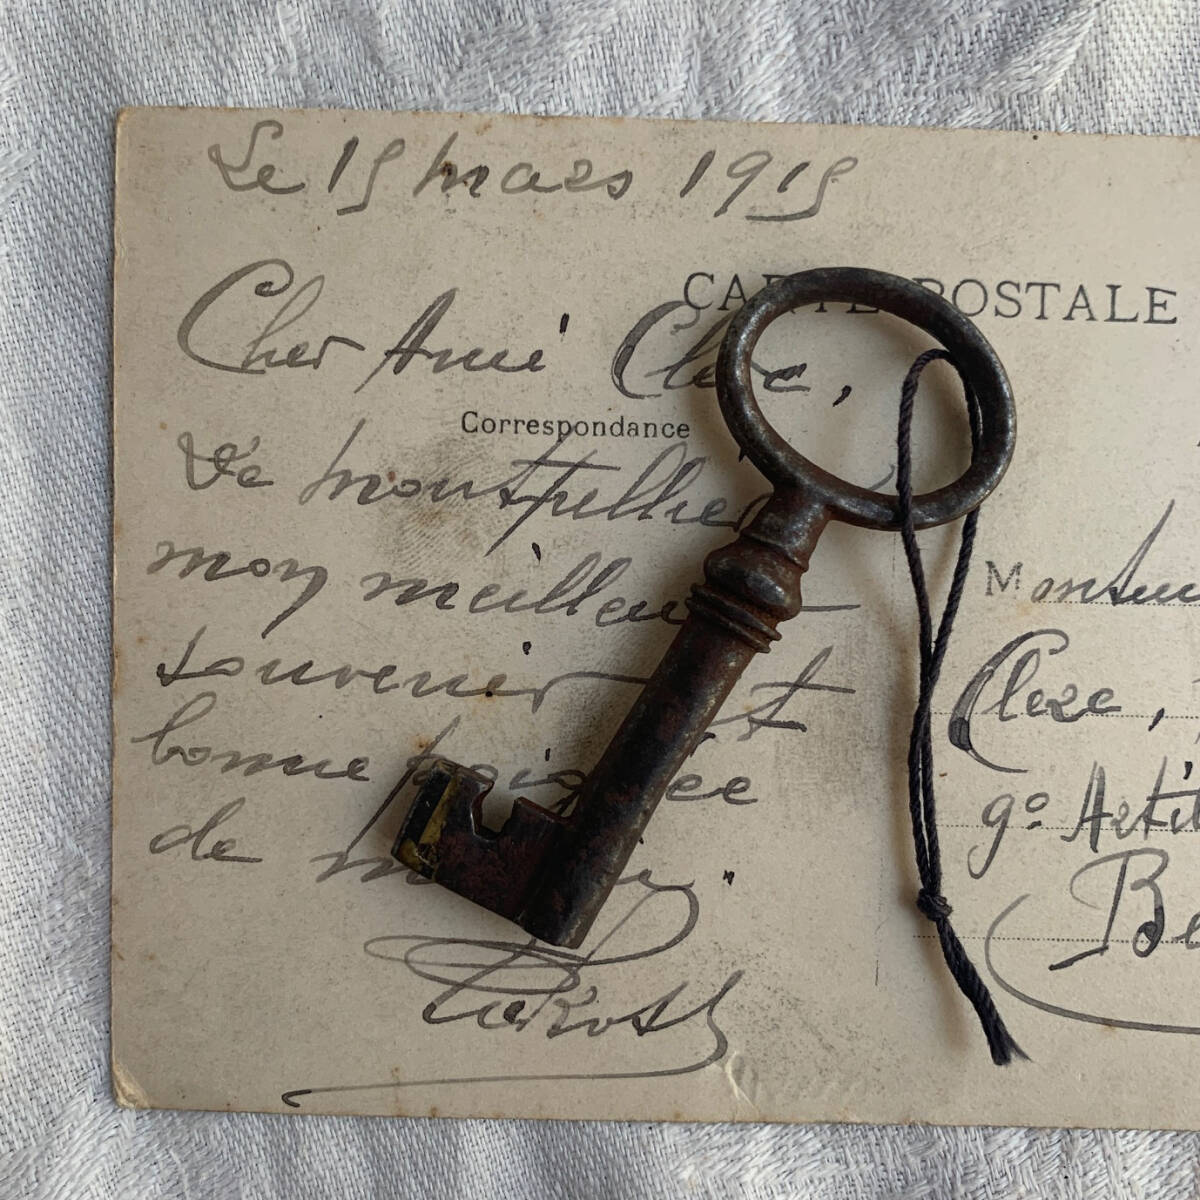 Le 15 mars 1915
CARTE POSTALE
Cher Ami Clerc,
Correspondance
De Montpellier
mon meilleur
souvenir et
bonne poignée
de main.
Monsieur
Clerc,
9º Artil
Be